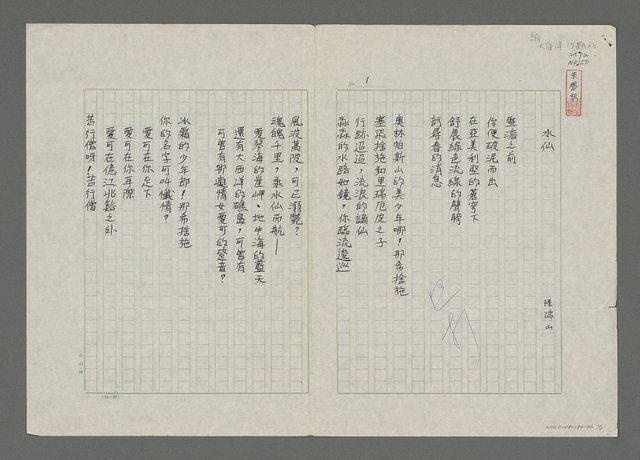 水仙
陳瑞山
驚濤之前
你便破泥而出
在亞美利堅的蒼穹下
舒展綠色流線的臂膀
訴尋春的消息
奧林帕斯山的美少年哪！那希捨施
塞飛捨施和里瑞厄庇之子
行跡迢迢，流浪的謫仙
淼淼的水路如鏡，你臨流逡巡
1
風波萬陂，可已溺斃？
魂魄千里，乘水仙而航—
愛琴海的崖岬、地中海的藍天
還有大西洋的礁島，可曾有
可曾有那癡情女愛可的聲音？
冰霜的少年郎！那希捨施
你的名字可叫懺情？
愛可在你足下
愛可在你耳際
愛可在億江兆谿之外
苦行僧呀！苦行僧
已刊